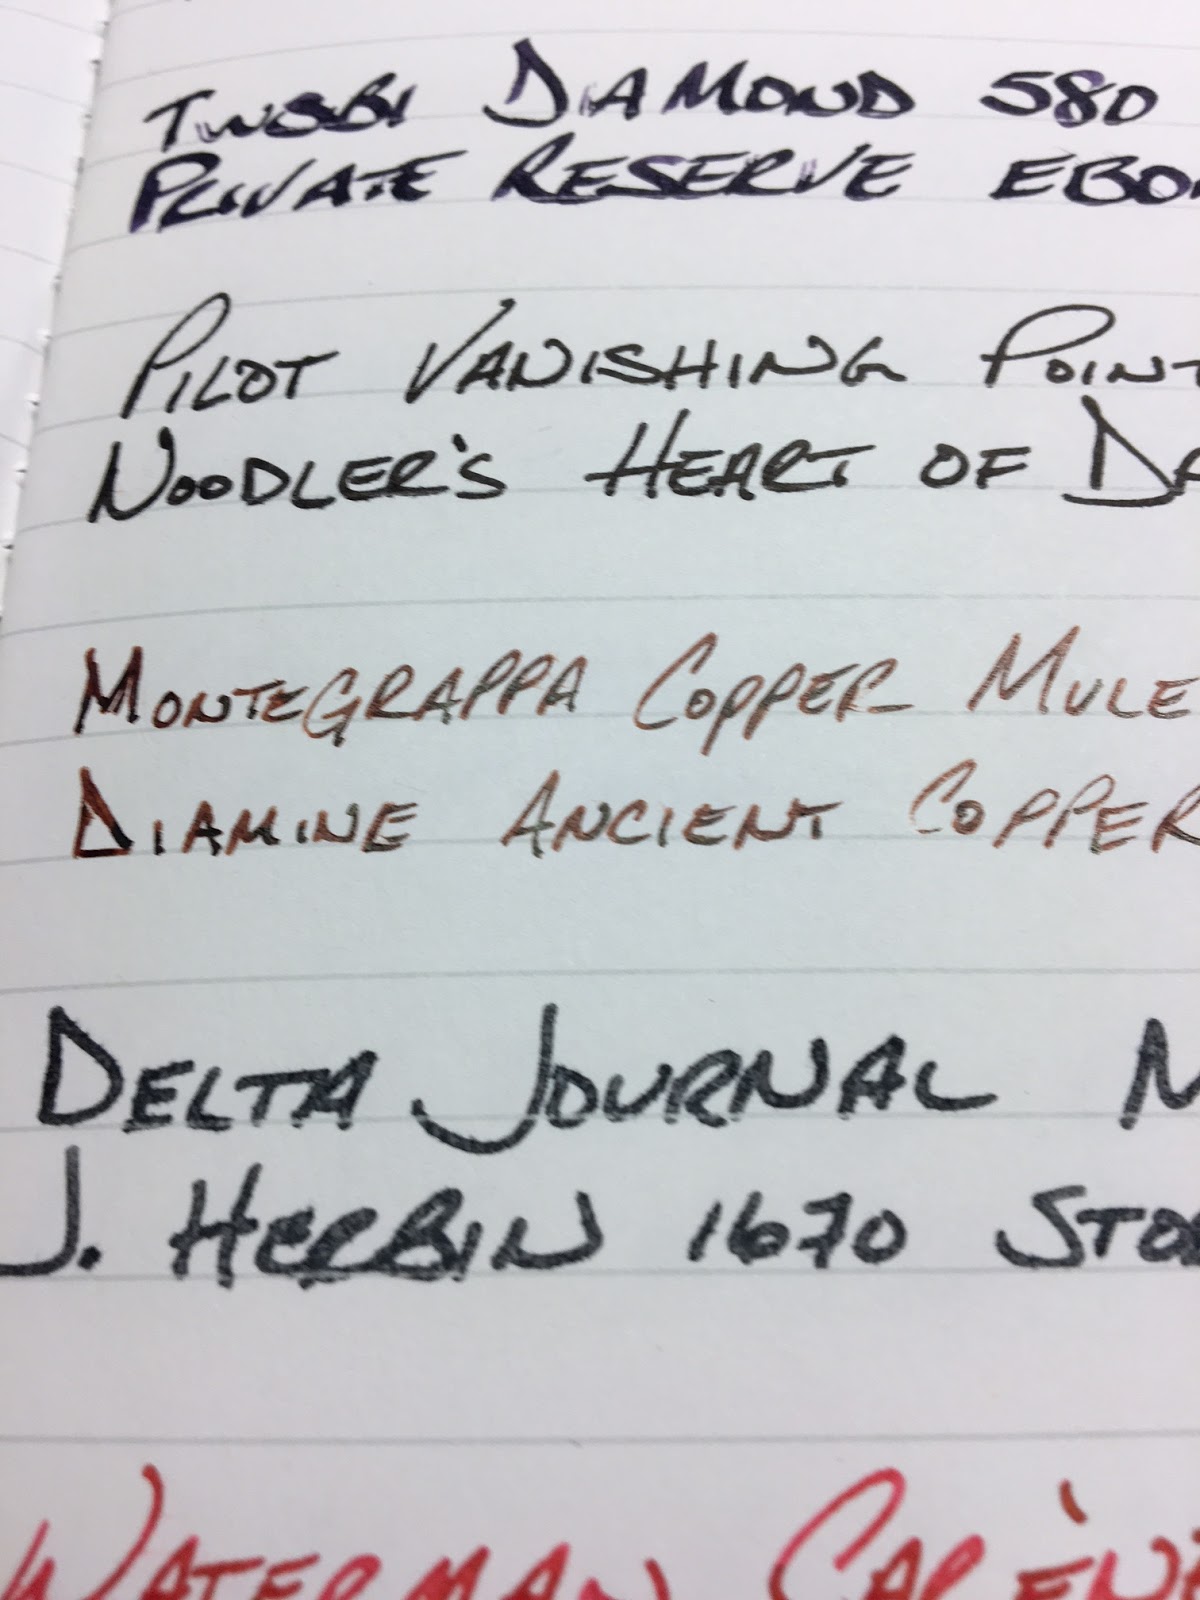 TWSBI DIAMOND 580
PRIVATE RESERVE EBO
PILOT VANISHING POINT
NOODLER'S HEART OF DA
MONTEGRAPPA COPPER MULE
DIAMINE ANCIENT COPPER
DELTA JOURNAL N
J. HERBIN 1670 STO
WATERMAN CARÈN